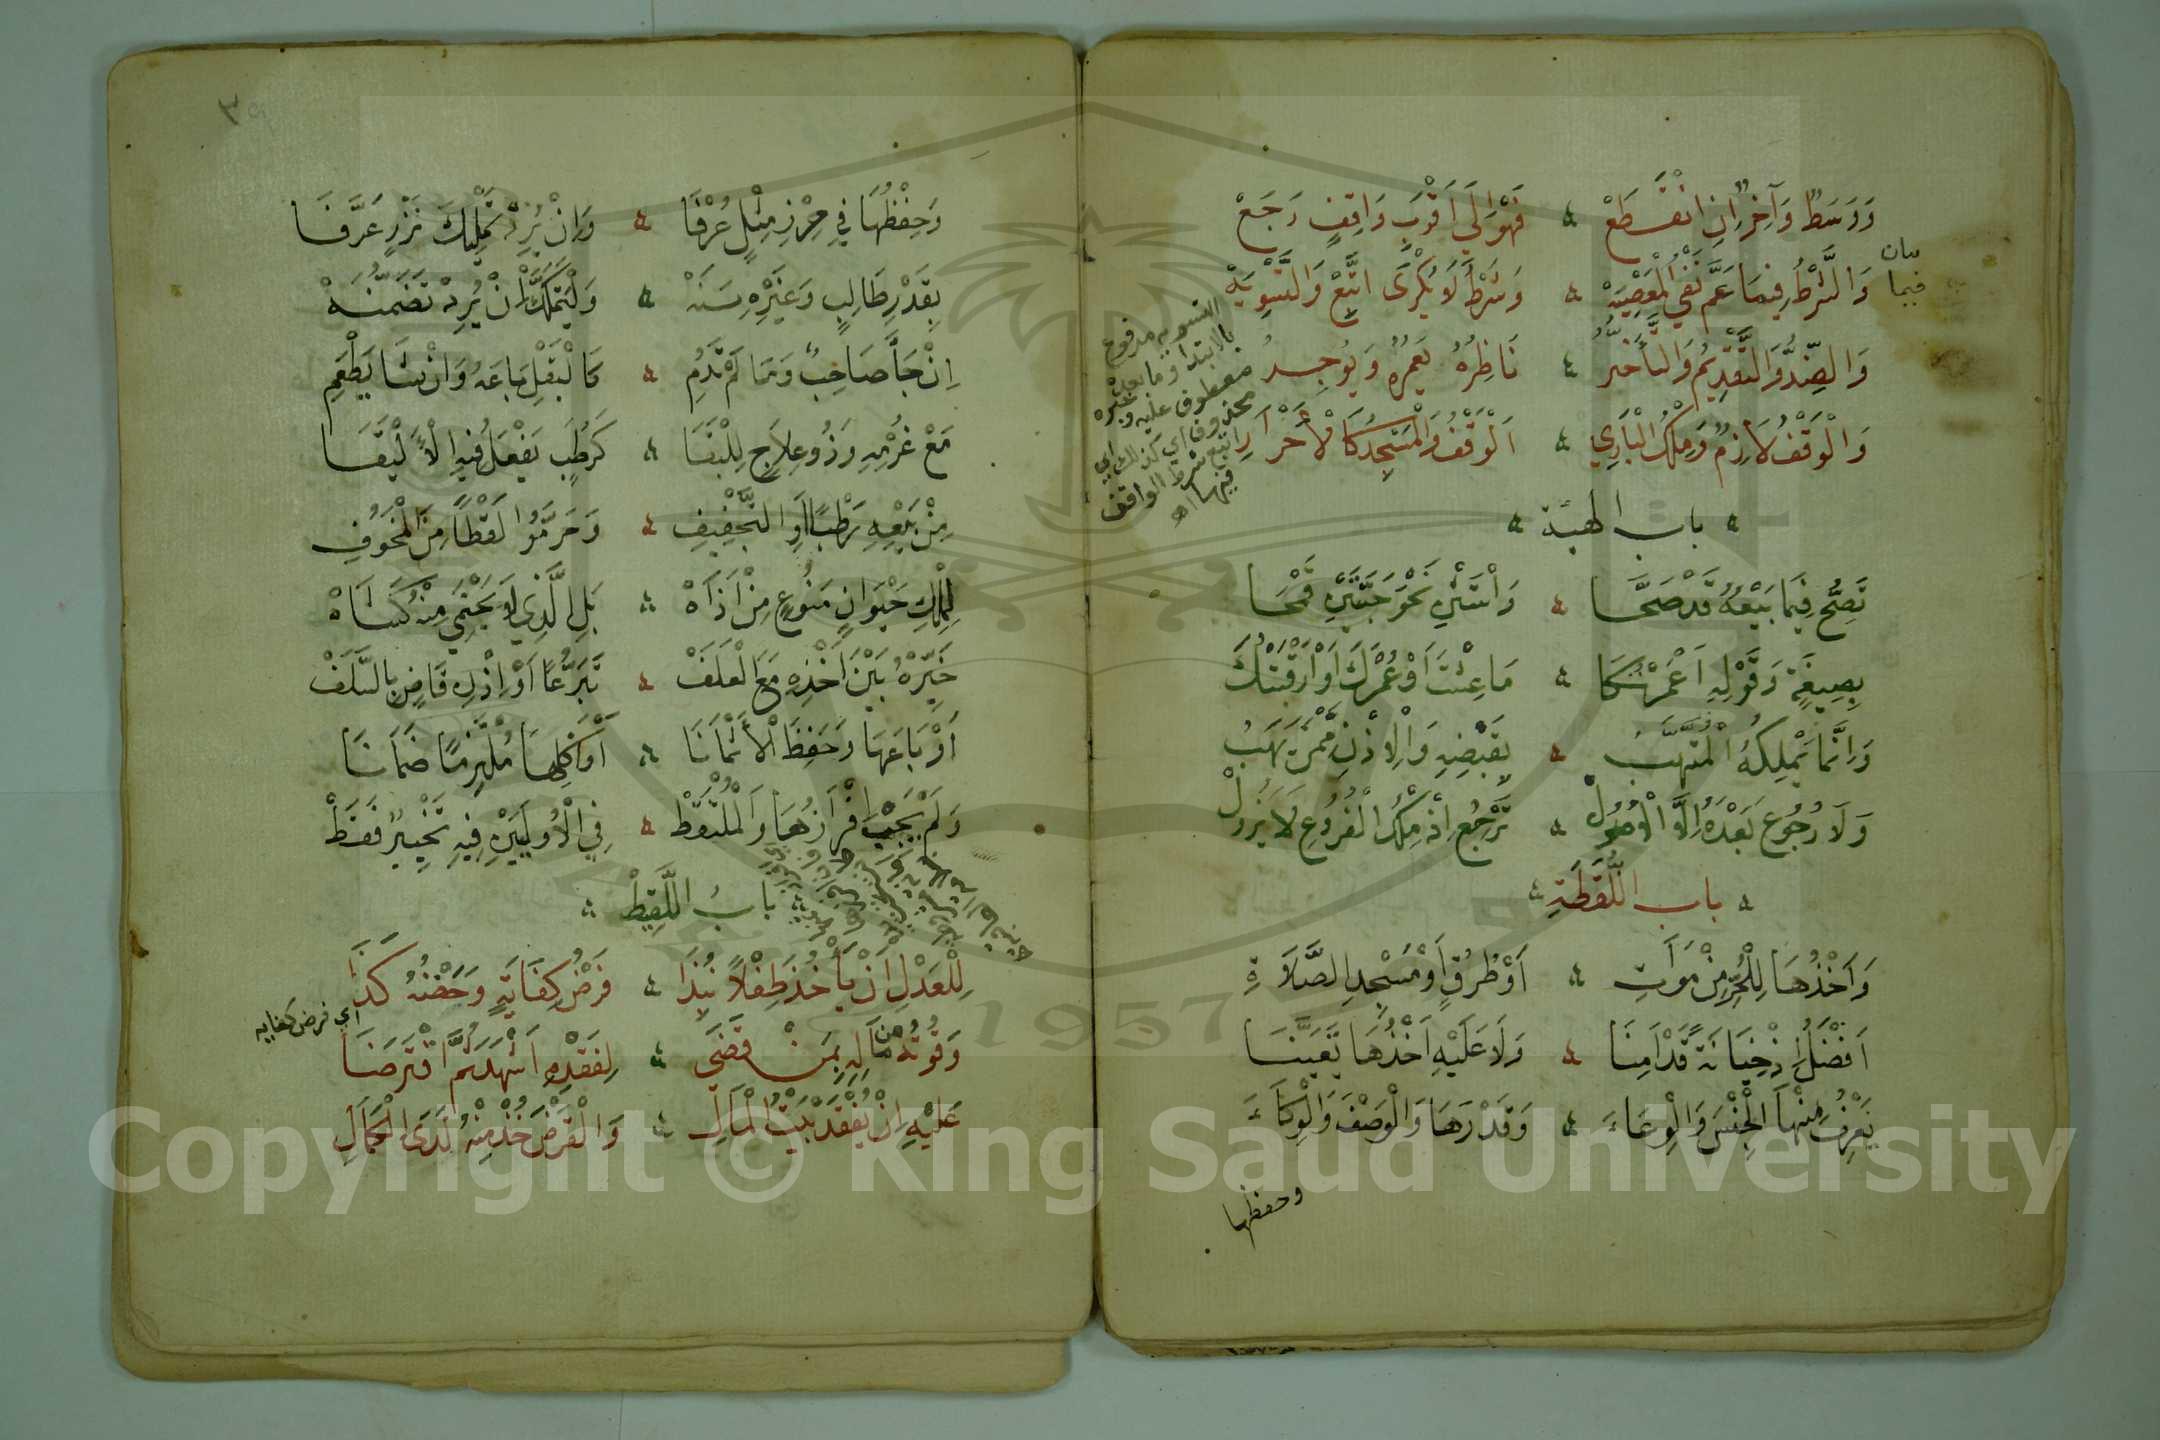 وَوَسَطٌ وَآخِرٌ اِنِ انْقَطَعْ ۞ فَهْوَ اِلَى اَقْرَبِ وَاقِفٍ رَجَعْ
بيان
فيما
وَالشَّرْطُ فِيمَا عَمَّ نَفْيُ الْمَعْصِيَهْ ۞ وَشَرْطُ لَا يُكْرَى اتَّبِعْ وَالتَّسْوِيَهْ
وَالضِّدُّ وَالتَّقْدِيمُ وَالتَّأَخُّرُ ۞ نَاظِرُهُ يَعْمُرُهُ وَيُوجِرُ
وَالْوَقْفُ لَازِمٌ وَمِلْكُ الْبَارِي ۞ اَلْوَقْفُ وَالْمَسْجِدُ كَالْأَحْرَارِ
التسويه مرفوع
بالابتدا وما بعده
معطوف عليه وخبره
محذوف اي كذلك اي
اتبع شرط الواقف
فيها اه
باب الهبة
تَصِحُّ فِيمَا بَيْعُهُ قَدْ صَحَّا ۞ وَاسْتَثْنِ نَحْوَ حَبَّتَيْنِ قَمْحَا
بِصِيغَةٍ وَقَوْلِهِ اَعْمَرْتُكَا ۞ مَا عِشْتَ اَوْ عُمْرَكَ اَوْ اَرْقَبْتُكَ
وَاِنَّمَا يَمْلِكُهُ الْمُتَّهِبُ ۞ بِقَبْضِهِ وَالْاِذْنِ مِمَّنْ يَهَبُ
وَلَا رُجُوعَ بَعْدَهُ اِلَّا الْاُصُولْ ۞ تَرْجِعُ اِذْ مِلْكُ الْفُرُوعِ لَا يَزُولْ
باب اللُّقَطَةِ
وَاَخْذُهَا لِلْحُرِّ مِنْ مَوَاتِ ۞ اَوْ طُرُقٍ اَوْ مَسْجِدِ الصَّلَاةِ
اَفْضَلُ اِذْ خِيَانَةً قَدْ اَمِنَا ۞ وَلَا عَلَيْهِ اَخْذُهَا تَعَيَّنَا
يَعْرِفُ مِنْهَا الْجِنْسَ وَالْوِعَاءَ ۞ وَقَدْرَهَا وَالْوَصْفَ وَالْوِكَاءَ
وحفظها
٣٩
وَحِفْظُهَا فِي حِرْزِ مِثْلٍ عُرْفَا ۞ وَاِنْ يُرِدْ تَمْلِيكَ نَزْرٍ عَرَّفَا
بِقَدْرِ طَالِبٍ وَغَيْرِهِ سَنَهْ ۞ وَلْيَتَمَلَّكْ اِنْ يُرِدْ تَضَمُّنَهْ
اِنْ جَآ صَاحِبٌ وَمَا لَمْ تَدُمِ ۞ كَالْبَقْلِ بَاعَهُ وَاِنْ شَا يَطْعَمِ
مَعْ غُرْمِهِ وَذُو عِلَاجٍ لِلْبَقَا ۞ كَرُطَبٍ يَفْعَلُ فِيهِ الْاَلْيَقَا
مِنْ بَيْعِهِ رَطْبًا اَوِ التَّجْفِيفِ ۞ وَحَرَّمُوا لَقْطًا مِنَ الْمَخُوفِ
لِمِلْكِ حَيَوَانٍ مَنُوعٍ مِنْ اَذَاهْ ۞ بَلِ الَّذِي لَا يَحْتَمِي مِنْهُ كَشَاهْ
خَيَّرْهُ بَيْنَ اَخْذِهِ مَعَ الْعَلَفْ ۞ تَبَرُّعًا اَوْ اِذْنِ قَاضٍ بِالسَّلَفْ
اَوْ بَاعَهَا وَحَفِظَ الْأَثْمَانَا ۞ اَوْ اَكْلِهَا مُلْتَزِمًا ضَمَانَا
وَلَمْ يَجِبْ اِفْرَازُهَا وَالْمُلْتَقَطْ ۞ فِي الْاُولَيَيْنِ فِيهِ تَخْيِيرٌ فَقَطْ
بابُ اللَّقِيطْ
لِلْعَدْلِ اَنْ يَأْخُذَ طِفْلًا نُبِذَا ۞ فَرْضُ كِفَايَةٍ وَحَضْنُهُ كَذَا
اي فرض كفايه
وَقُوتُهُ مِنْ مَالِهِ بِمَنْ قَضَى ۞ لِفَقْدِهِ اَشْهَدَ ثُمَّ اقْتَرَضَا
عَلَيْهِ اِنْ يُفْقَدْ بَيْتُ الْمَالِ ۞ وَالْقَرْضَ خُذْ مِنْهُ لَدَى الْكَمَالِ
1957
Copyright © King Saud University